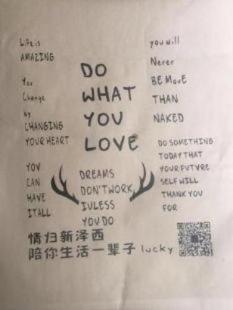 Life is
AMAZING
You
Change
by
CHANGING
YOUR HEART
YOU
CAN
HAVE
IT ALL
DO
WHAT
YOU
LOVE
DREAMS
DON'T WORK
IULESS
YOU DO
you will
Never
BE MoRE
THAN
NAKED
DO SOMETHING
TODAY THAT
YOUR FUTVRE
SELF WILL
THANK YOU
FOR
情归新泽西
陪你生活一辈子 lucky